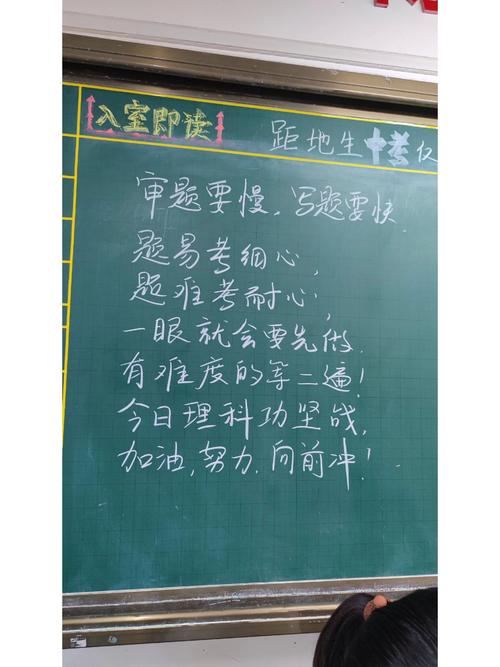 入室即读
距地生中考仅
审题要慢,写题要快.
题易考细心,
题难考耐心,
一眼就会要先做.
有难度的等二遍!
今日理科功坚战,
加油,努力.向前冲!